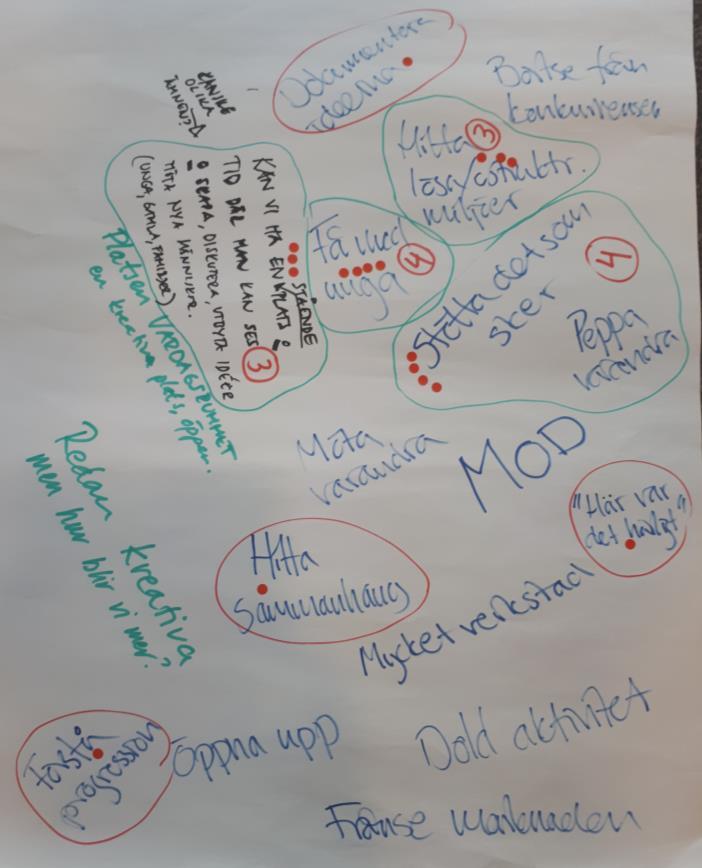 Dokumentera
idéerna
Bortse från
konkurrensen
KANSKE
OLIKA
ÄMNEN?
Hitta 3
lösa/ostruktr.
miljöer
KAN VI HA EN PLATS O STÅENDE
TID DÄR MAN KAN SES
O SKAPA, DISKUTERA, UTBYTA IDÉER
MÖTA NYA MÄNNISKOR.
(UNGA, GAMLA, FAMILJER)
3
Få med
unga
4
Stötta det som
sker
4
Peppa
varandra
Platsen VARDAGSRUMMET
en kreativa plats, öppen.
Möta
varandra
MOD
"Här var
det härligt"
Redan kreativa
men hur blir vi mer?
Hitta
sammanhang
Mycket verkstad
Förstå
progression
Öppna upp
Dold aktivitet
Frånse marknaden